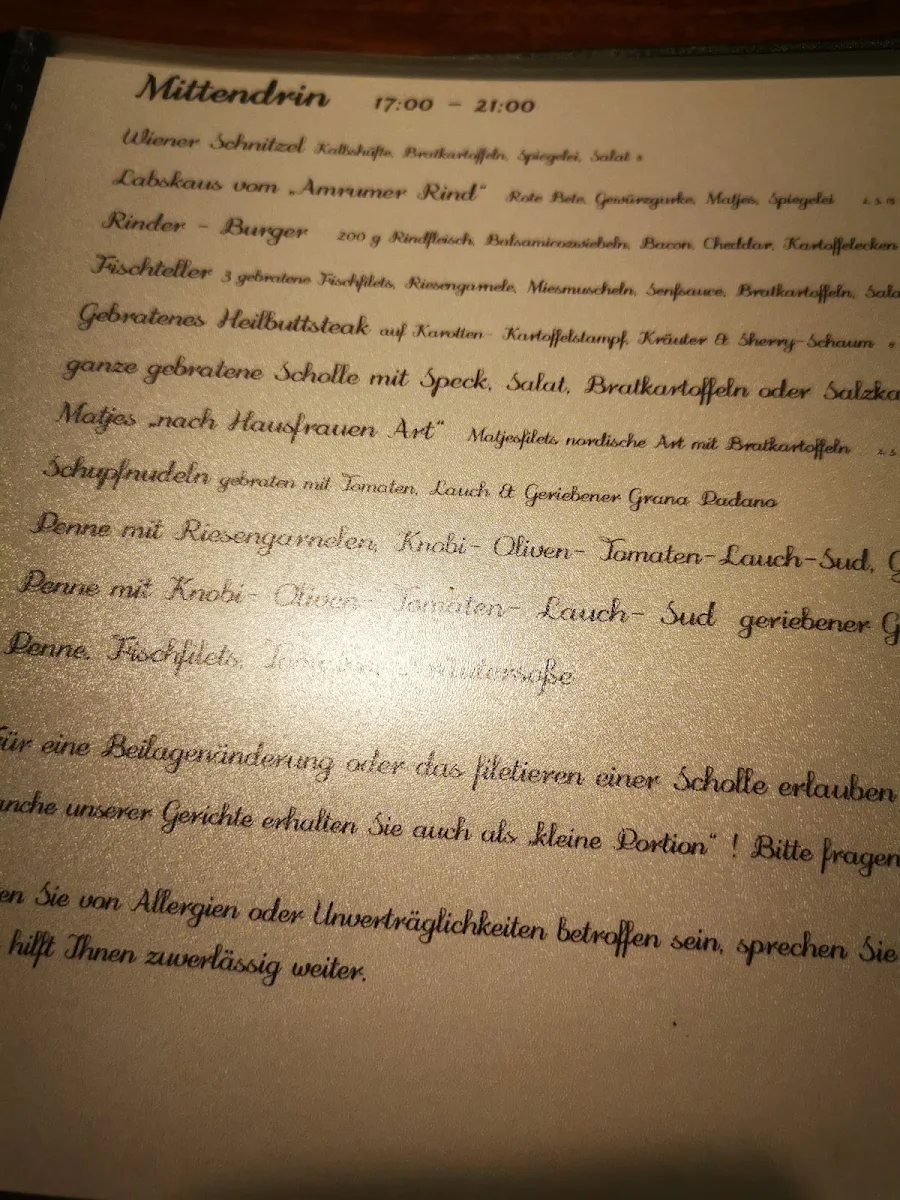 Mittendrin 17:00 – 21:00
Wiener Schnitzel Kalbshüfte, Bratkartoffeln, Spiegelei, Salat
Labskaus vom „Amrumer Rind“ Rote Bete, Gewürzgurke, Matjes, Spiegelei
Rinder – Burger 200 g Rindfleisch, Balsamicozwiebeln, Bacon, Cheddar, Kartoffelecken
Fischteller 3 gebratene Fischfilets, Riesengarnele, Miesmuscheln, Senfsauce, Bratkartoffeln, Sala
Gebratenes Heilbuttsteak auf Karotten- Kartoffelstampf, Kräuter & Sherry-Schaum
ganze gebratene Scholle mit Speck, Salat, Bratkartoffeln oder Salzka
Matjes „nach Hausfrauen Art“ Matjesfilets nordische Art mit Bratkartoffeln
Schupfnudeln gebraten mit Tomaten, Lauch & Geriebener Grana Padano
Penne mit Riesengarnelen, Knobi- Oliven- Tomaten-Lauch-Sud, G
Penne mit Knobi- Oliven- Tomaten- Lauch- Sud geriebener G
Penne, Fischfilets, Kräutersoße
für eine Beilagenänderung oder das filetieren einer Scholle erlauben
anche unserer Gerichte erhalten Sie auch als „kleine Portion“ ! Bitte fragen
en Sie von Allergien oder Unverträglichkeiten betroffen sein, sprechen Sie
hilft Ihnen zuverlässig weiter.